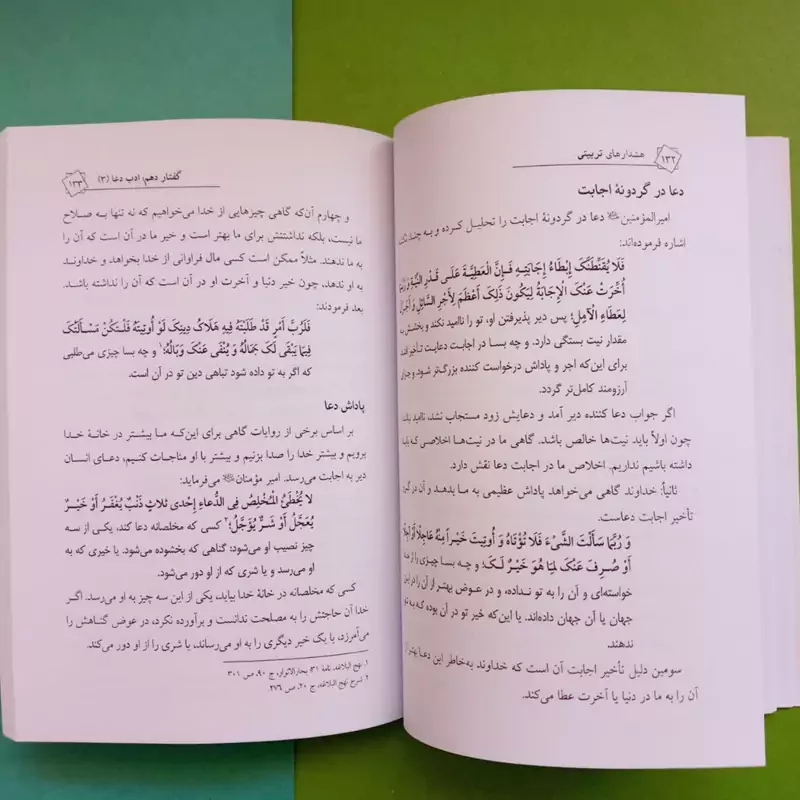 ۱۳۲
هشدارهای تربیتی
دعا در گردونهٔ اجابت
امیرالمؤمنین دعا در گردونهٔ اجابت را تحلیل کرده و به چند
اشاره فرموده‌اند:
فَلَا يُقَنِّطَنَّكَ إِبْطَاءُ إِجَابَتِهِ فَإِنَّ الْعَطِيَّةَ عَلَى قَدْرِ النِّيَّةِ وَ
أُخِّرَتْ عَنْكَ الْإِجَابَةُ لِيَكُونَ ذَلِكَ أَعْظَمَ لِأَجْرِ السَّائِلِ وَ
لِعَطَاءِ الْآمِلِ؛ پس دیر پذیرفتن او، تو را ناامید نکند و بخشش به
مقدار نیت بستگی دارد. و چه بسا در اجابت دعایت تأخیر
برای این‌که اجر و پاداش درخواست کننده بزرگ‌تر شود و
آرزومند کامل‌تر گردد.
اگر جواب دعا کننده دیر آمد و دعایش زود مستجاب نشد، ناامید
چون اولاً باید نیت‌ها خالص باشد. گاهی ما در نیت‌ها اخلاصی که باید
داشته باشیم نداریم. اخلاص ما در اجابت دعا نقش دارد.
ثانیاً: خداوند گاهی می‌خواهد پاداش عظیمی به ما بدهد و آن در گرو
تأخیر اجابت دعاست.
وَ رُبَّمَا سَأَلْتَ الشَّيْءَ فَلَا تُؤْتَاهُ وَ أُوتِيتَ خَيْراً مِنْهُ عَاجِلًا أَوْ
أَوْ صُرِفَ عَنْكَ لِمَا هُوَ خَيْرٌ لَكَ؛ و چه بسا چیزی را
خواسته‌ای و آن را به تو نداده، و در عوض بهتر از آن را در این
جهان یا آن جهان داده‌اند. یا این‌که خیر تو در آن بوده که به تو
ندهند.
سومین دلیل تأخیر اجابت آن است که خداوند به‌خاطر این دعا بهتر از
آن را به ما در دنیا یا آخرت عطا می‌کند.
گفتار دهم: ادب دعا (۳)
۱۳۳
و چهارم آن‌که گاهی چیزهایی از خدا می‌خواهیم که نه تنها به صلاح
ما نیست، بلکه نداشتنش برای ما بهتر است و خیر ما در آن است که آن را
به ما ندهند. مثلاً ممکن است کسی مال فراوانی از خدا بخواهد و خداوند
به او ندهد، چون خیر دنیا و آخرت او در آن است که آن را نداشته باشد.
بعد فرمودند:
فَلَرُبَّ أَمْرٍ قَدْ طَلَبْتَهُ فِيهِ هَلَاكُ دِينِكَ لَوْ أُوتِيتَهُ فَلْتَكُنْ مَسْأَلَتُكَ
فِيمَا يَبْقَى لَكَ جَمَالُهُ وَ يُنْفَى عَنْكَ وَبَالُهُ؛ ۱ و چه بسا چیزی می‌طلبی
که اگر به تو داده شود تباهی دین تو در آن است.
پاداش دعا
بر اساس برخی از روایات گاهی برای این‌که ما بیشتر در خانهٔ خدا
برویم و بیشتر خدا را صدا بزنیم و بیشتر با او مناجات کنیم، دعای انسان
دیر به اجابت می‌رسد. امیر مؤمنان می‌فرماید:
لَا يُخْطِئُ الْمُخْلِصُ فِي الدُّعَاءِ إِحْدَى ثَلَاثٍ ذَنْبٌ يُغْفَرُ أَوْ خَيْرٌ
يُعَجَّلُ أَوْ شَرٌّ يُؤَجَّلُ؛ ۲ کسی که مخلصانه دعا کند، یکی از سه
چیز نصیب او می‌شود: گناهی که بخشوده می‌شود. یا خیری که به
او می‌رسد و یا شری که از او دور می‌شود.
کسی که مخلصانه در خانهٔ خدا بیاید، یکی از این سه چیز به او می‌رسد. اگر
خدا آن حاجتش را به مصلحت ندانست و برآورده نکرد، در عوض گناهش را
می‌آمرزد، یا یک خیر دیگری را به او می‌رساند، یا شری را از او دور می‌کند.
۱. نهج البلاغه، نامهٔ ۳۱؛ بحارالانوار، ج ۹۰، ص ۳۰۱
۲. شرح نهج البلاغه، ج ۲۰، ص ۲۷۶.